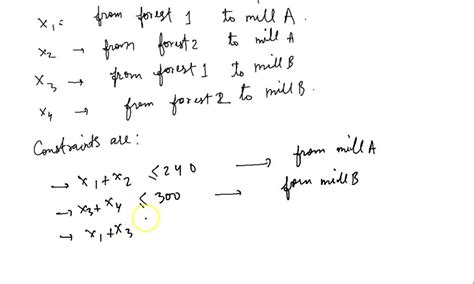 x₁ = from forest 1 to mill A
x₂ → from forest 2 to mill A
x₃ → from forest 1 to mill B
x₄ → from forest 2 to mill B.
Constraints are:
→ x₁ + x₂ ≤ 240 → from mill A
→ x₃ + x₄ ≤ 300 → from mill B
→ x₁ + x₃